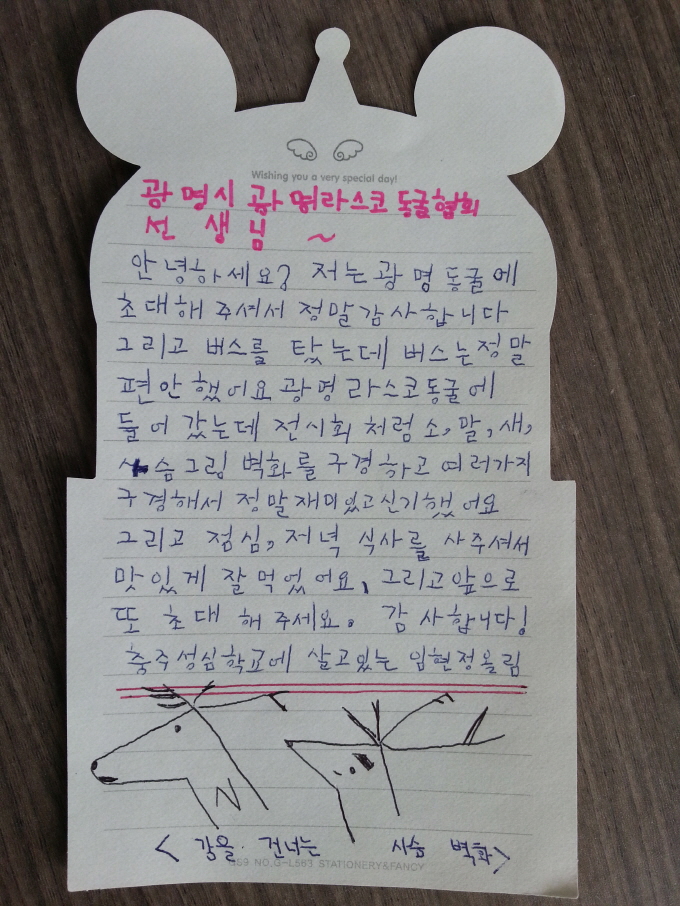 Wishing you a very special day!
광명시 광명라스코 동굴협회
선생님 ~
안녕하세요? 저는 광명동굴에
초대해 주셔서 정말감사합니다
그리고 버스를 탔는데 버스는정말
편안했어요 광명라스코동굴에
들어 갔는데 전시회 처럼 소, 말, 새,
사슴그림 벽화를 구경하고 여러가지
구경해서 정말재미있고신기했어요
그리고 점심, 저녁 식사를 사주셔서
맛있게 잘먹었어요, 그리고앞으로
또 초대 해 주세요. 감사합니다!
충주성심학교에 살고있는 임현정올림
<강을 건너는 사슴 벽화>
NO.G-L583 STATIONERY&FANCY